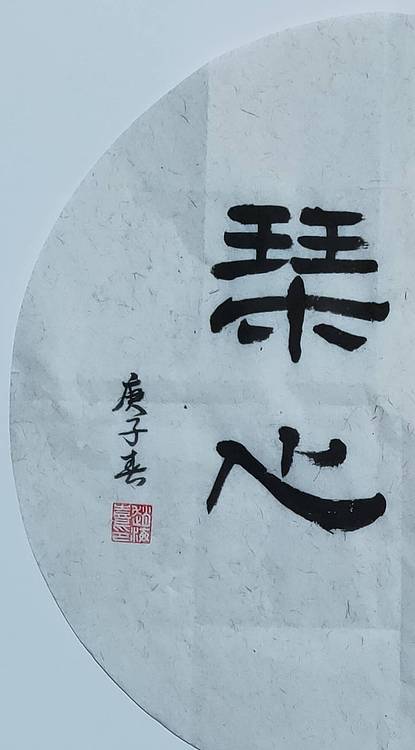 琹心
庚子春